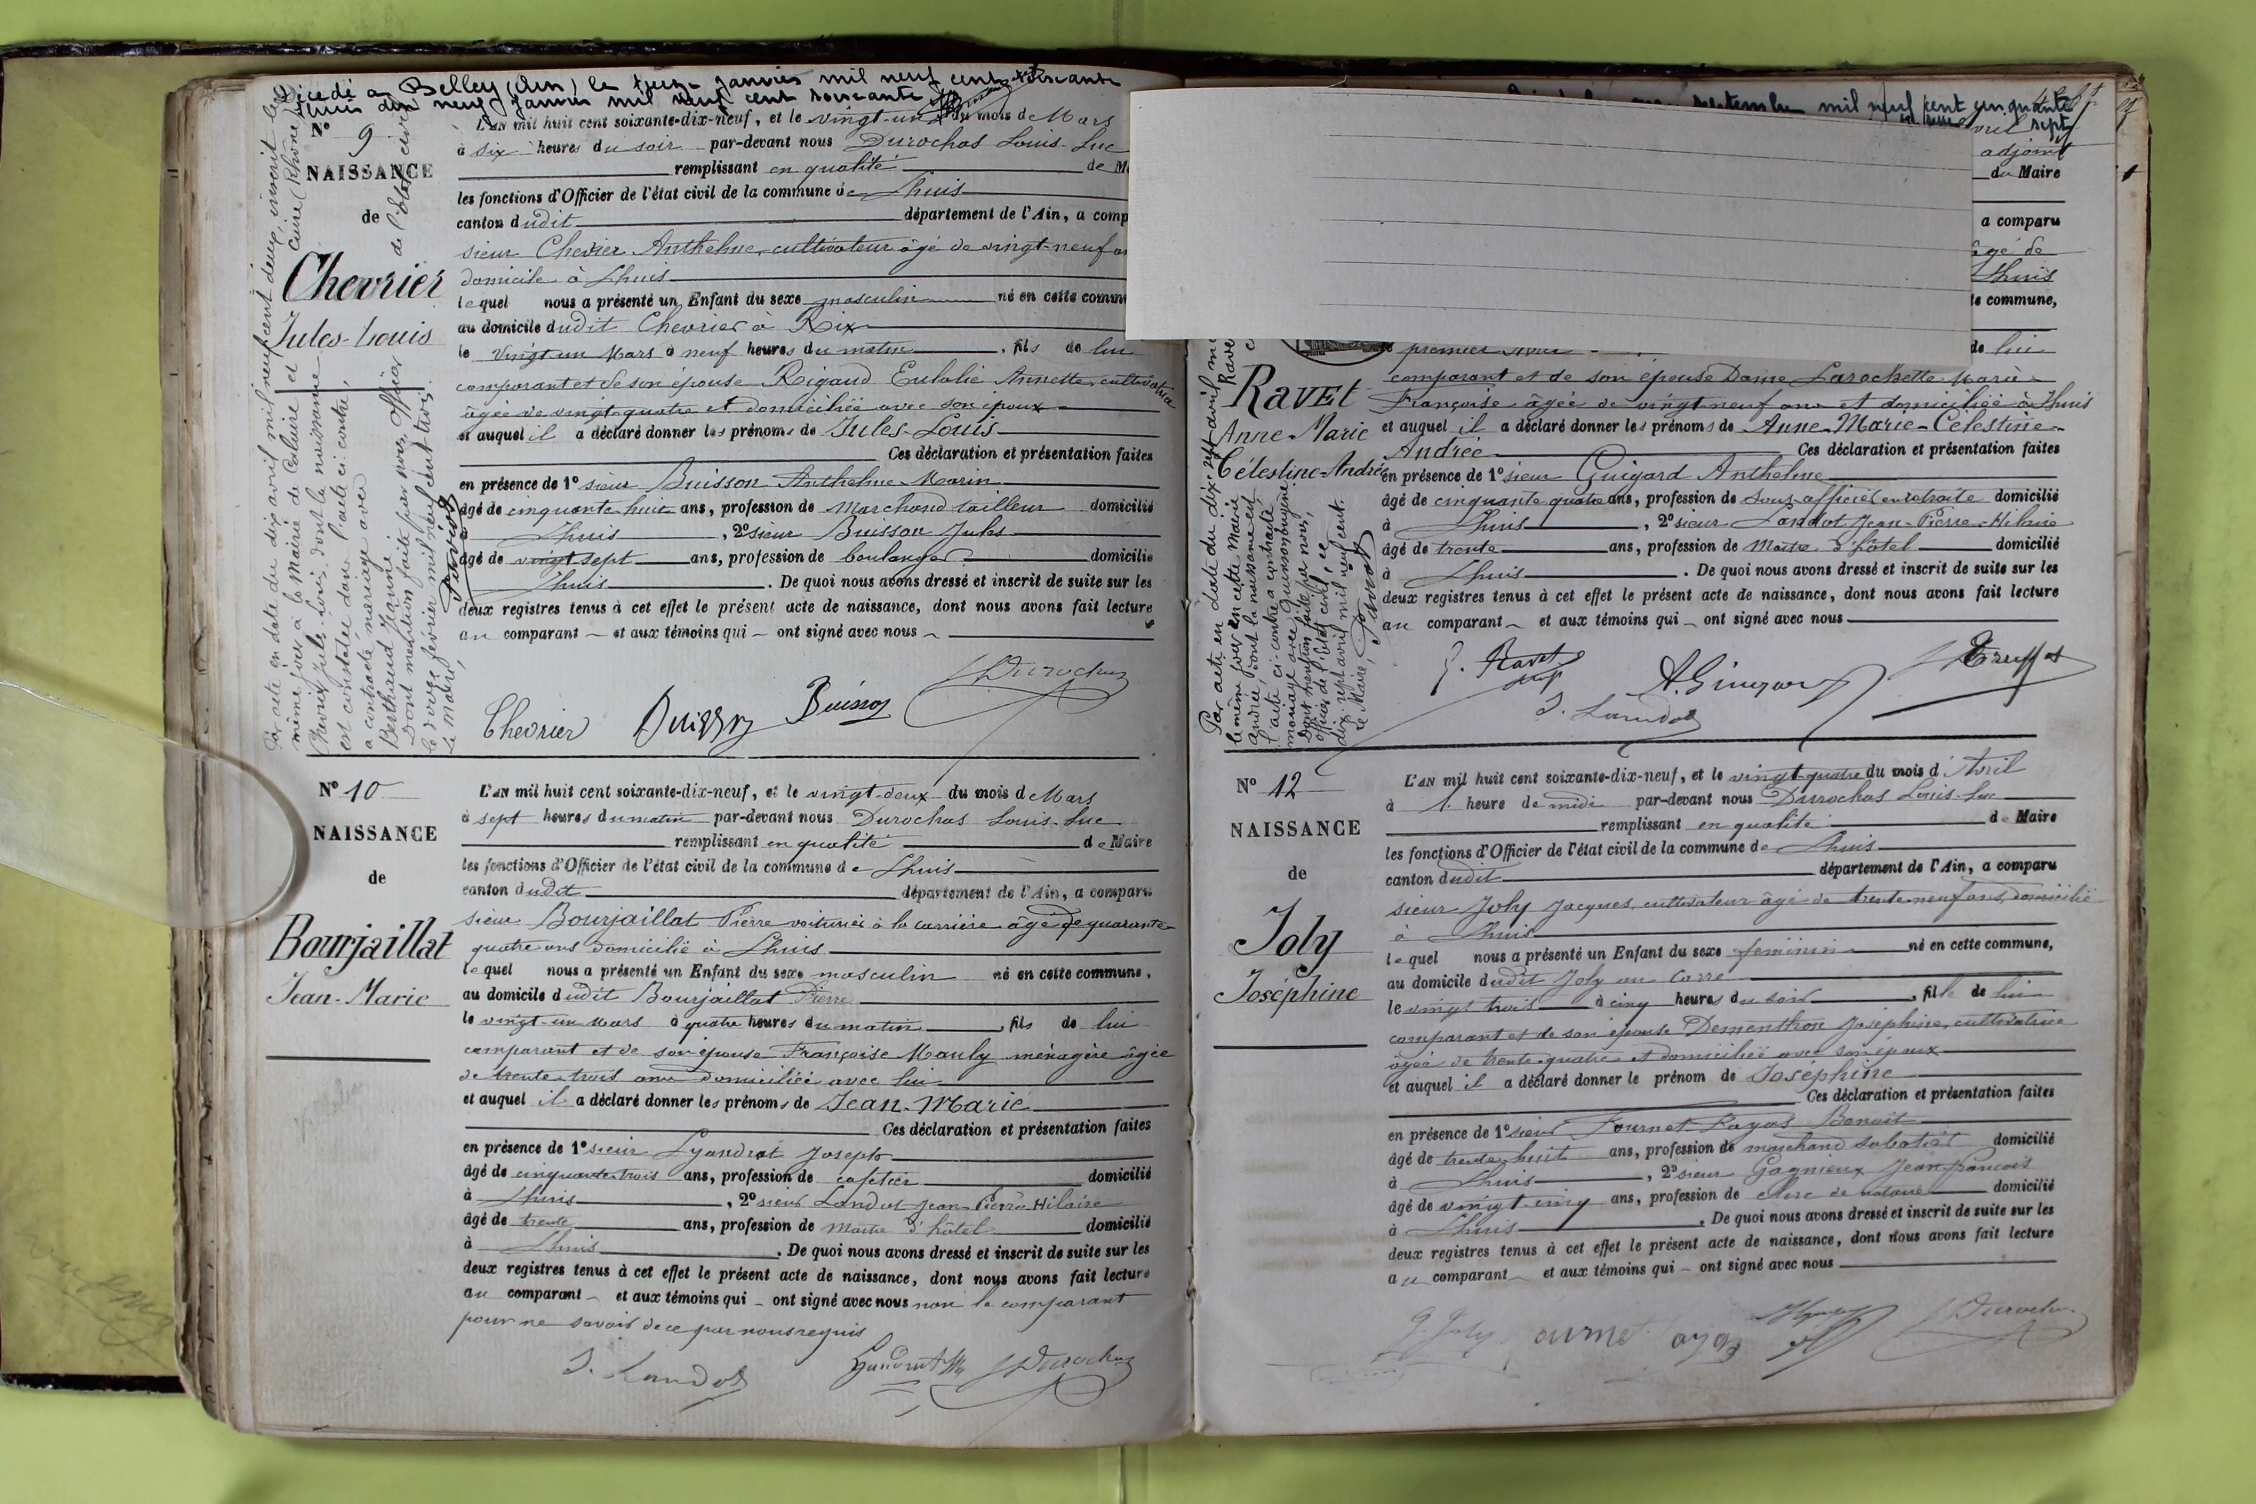 Décédé à Belley (Ain) le treize janvier mil neuf cent soixante
neuf janvier mil neuf cent soixante
N° 9
NAISSANCE
de
Chevrier
Jules-Louis
Par acte en date du dix avril mil neuf cent deux, inscrit le
même jour à la Mairie de Caluire et Cuire (Rhône)
Chevrier Jules-Louis, dont la naissance
est constatée dans l'acte ci-contre,
a contracté mariage avec
Berthaud Jeanne
Dont mention faite par nous, officier de l'état civil
le douze février mil neuf cent trois.
Le Maire,
L'AN mil huit cent soixante-dix-neuf, et le vingt-un du mois de Mars
à six heures du soir par-devant nous Durochas Louis-Luc
remplissant en qualité de M
les fonctions d'Officier de l'état civil de la commune de Lhuis
canton dudit département de l'Ain, a comp
sieur Chevrier Anthelme, cultivateur âgé de vingt-neuf an
domicile à Lhuis
lequel nous a présenté un Enfant du sexe masculin né en cette commu
au domicile dudit Chevrier à Rix
le vingt un Mars à neuf heures du matin, fils de lui
comparant et de son épouse Rigaud Eulalie Annette, cultivatrice
âgée de vingt-quatre et domiciliée avec son époux
et auquel il a déclaré donner les prénoms de Jules-Louis
Ces déclaration et présentation faites
en présence de 1° sieur Buisson Anthelme Marin
âgé de cinquante huit ans, profession de Marchand tailleur domicilié
à Lhuis, 2° sieur Buisson Jules
âgé de vingt sept ans, profession de boulanger domicilié
Lhuis. De quoi nous avons dressé et inscrit de suite sur les
deux registres tenus à cet effet le présent acte de naissance, dont nous avons fait lecture
au comparant et aux témoins qui ont signé avec nous
Chevrier Buisson Buisson Durochas
N° 10
NAISSANCE
de
Bourjaillat
Jean-Marie
L'AN mil huit cent soixante-dix-neuf, et le vingt-deux du mois de Mars
à sept heures du matin par-devant nous Durochas Louis-Luc
remplissant en qualité de Maire
les fonctions d'Officier de l'état civil de la commune de Lhuis
canton dudit département de l'Ain, a comparu
sieur Bourjaillat Pierre voiturier à la carrière âgé de quarante
quatre ans domicilié à Lhuis
lequel nous a présenté un Enfant du sexe masculin né en cette commune,
au domicile dudit Bourjaillat Pierre
le vingt-un Mars à quatre heures du matin, fils de lui
comparant et de son épouse Françoise Mauly ménagère âgée
de trente-trois ans domiciliée avec lui
et auquel il a déclaré donner les prénoms de Jean-Marie
Ces déclaration et présentation faites
en présence de 1° sieur Gandrat Joseph
âgé de cinquante-trois ans, profession de cafetier domicilié
à Lhuis, 2° sieur Landot Jean-Pierre-Hilaire
âgé de trente ans, profession de Maître d'hôtel domicilié
à Lhuis. De quoi nous avons dressé et inscrit de suite sur les
deux registres tenus à cet effet le présent acte de naissance, dont nous avons fait lecture
au comparant et aux témoins qui ont signé avec nous non le comparant
pour ne savoir de ce par nous requis
J. Landot Durochas
septembre mil neuf cent cinquante
sept
avril
adjoint
du Maire
a comparu
âgé de
Lhuis
te commune,
premier
de lui
Ravet
Anne-Marie
Célestine-Andrée
Par acte en date du dix-sept avril mil
le même jour en cette Mairie, Rave
Andrée, dont la naissance est
l'acte ci-contre a contracté
mariage avec
Dont mention faite par nous,
officier de l'état civil, ce
dix sept avril mil neuf cent.
Le Maire,
comparant et de son épouse Dame Larochette Marie
Françoise âgée de vingt-neuf ans et domiciliée à Lhuis
et auquel il a déclaré donner les prénoms de Anne-Marie-Célestine
Andrée Ces déclaration et présentation faites
en présence de 1° sieur Guigard Anthelme
âgé de cinquante quatre ans, profession de sous-officier en retraite domicilié
à Lhuis, 2° sieur Landot Jean-Pierre-Hilaire
âgé de trente ans, profession de Maître d'hôtel domicilié
à Lhuis. De quoi nous avons dressé et inscrit de suite sur les
deux registres tenus à cet effet le présent acte de naissance, dont nous avons fait lecture
au comparant et aux témoins qui ont signé avec nous
Ravet A. Guigard
J. Landot
N° 12
NAISSANCE
de
Joly
Joséphine
L'AN mil huit cent soixante-dix-neuf, et le vingt-quatre du mois d'Avril
à 1 heure de midi par-devant nous Durochas Louis-Luc
remplissant en qualité de Maire
les fonctions d'Officier de l'état civil de la commune de Lhuis
canton dudit département de l'Ain, a comparu
sieur Joly Jacques, cultivateur âgé de trente-neuf ans, domicilié
à Lhuis
lequel nous a présenté un Enfant du sexe féminin né en cette commune,
au domicile dudit Joly au Carre
le vingt trois à cinq heures du soir, fille de lui
comparant et de son épouse Dementhon Joséphine, cultivatrice
âgée de trente-quatre et domiciliée avec son époux
et auquel il a déclaré donner le prénom de Joséphine
Ces déclaration et présentation faites
en présence de 1° sieur Fournet Fayas Benoit
âgé de trente-huit ans, profession de marchand sabotier domicilié
à Lhuis, 2° sieur Gagnieux Jean François
âgé de vingt-cinq ans, profession de clerc de notaire domicilié
à Lhuis. De quoi nous avons dressé et inscrit de suite sur les
deux registres tenus à cet effet le présent acte de naissance, dont nous avons fait lecture
au comparant et aux témoins qui ont signé avec nous
J. Joly Durochas